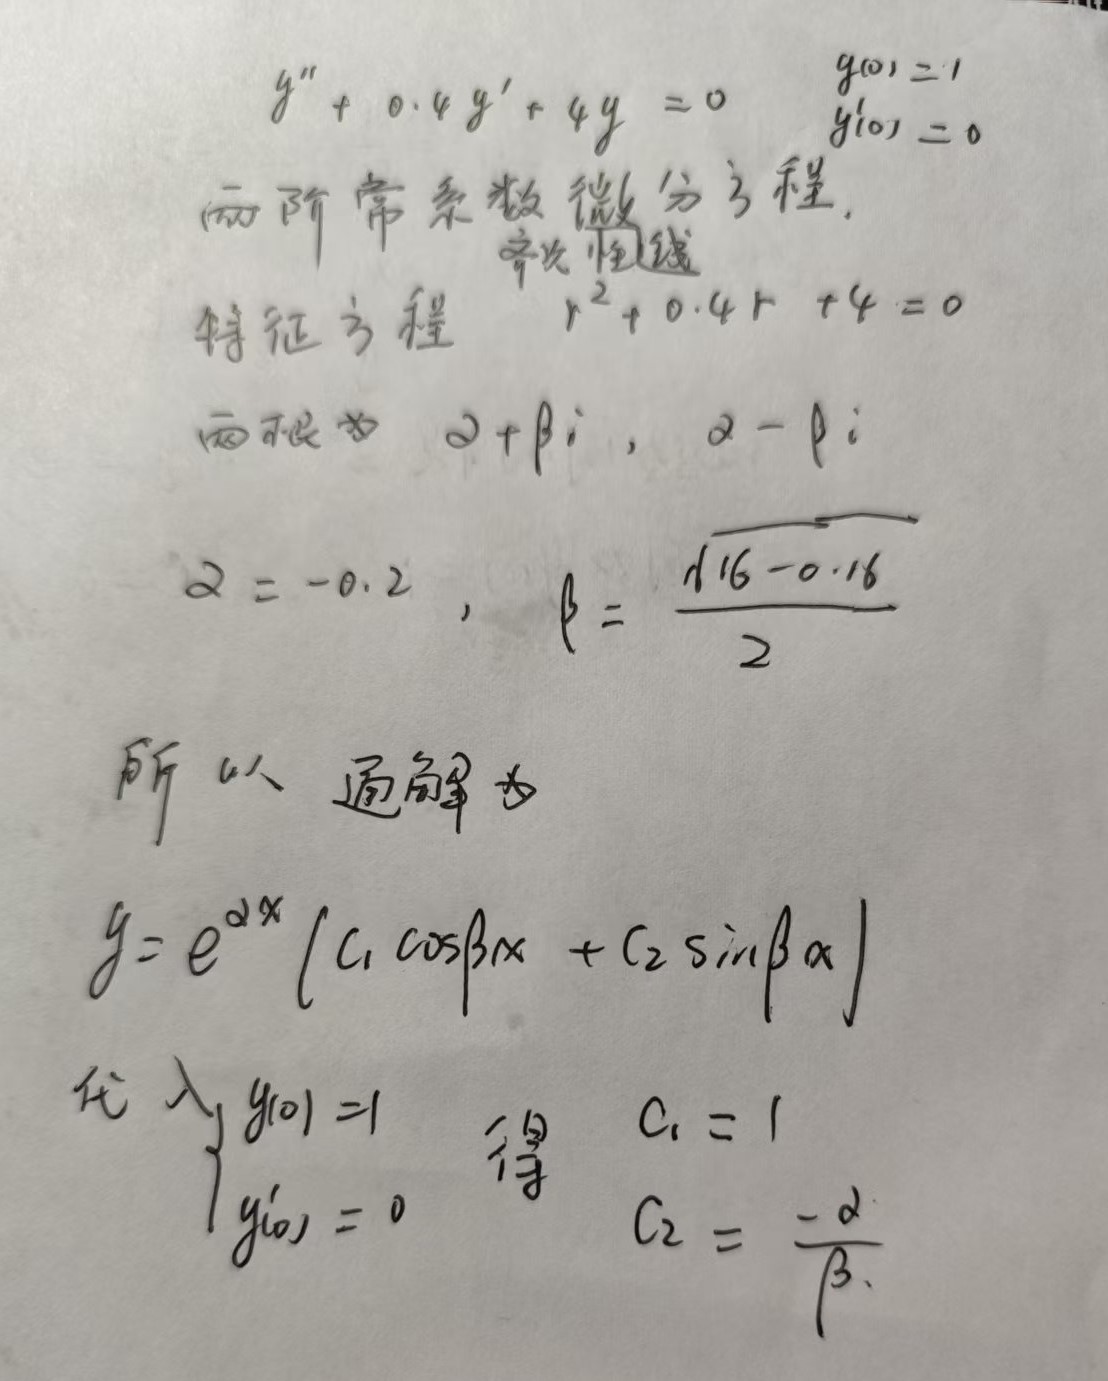 y'' + 0.4y' + 4y = 0    y(0) = 1
y'(0) = 0
两阶常系数微分方程.
齐次 线
特征方程  r² + 0.4r + 4 = 0
两根为 α+βi, α-βi
α = -0.2, β = √(16-0.16) / 2
所以 通解为
y = e^{αx} (C₁ cosβx + C₂ sinβx)
代入 { y(0) = 1  得  C₁ = 1
y'(0) = 0    C₂ = -α/β.